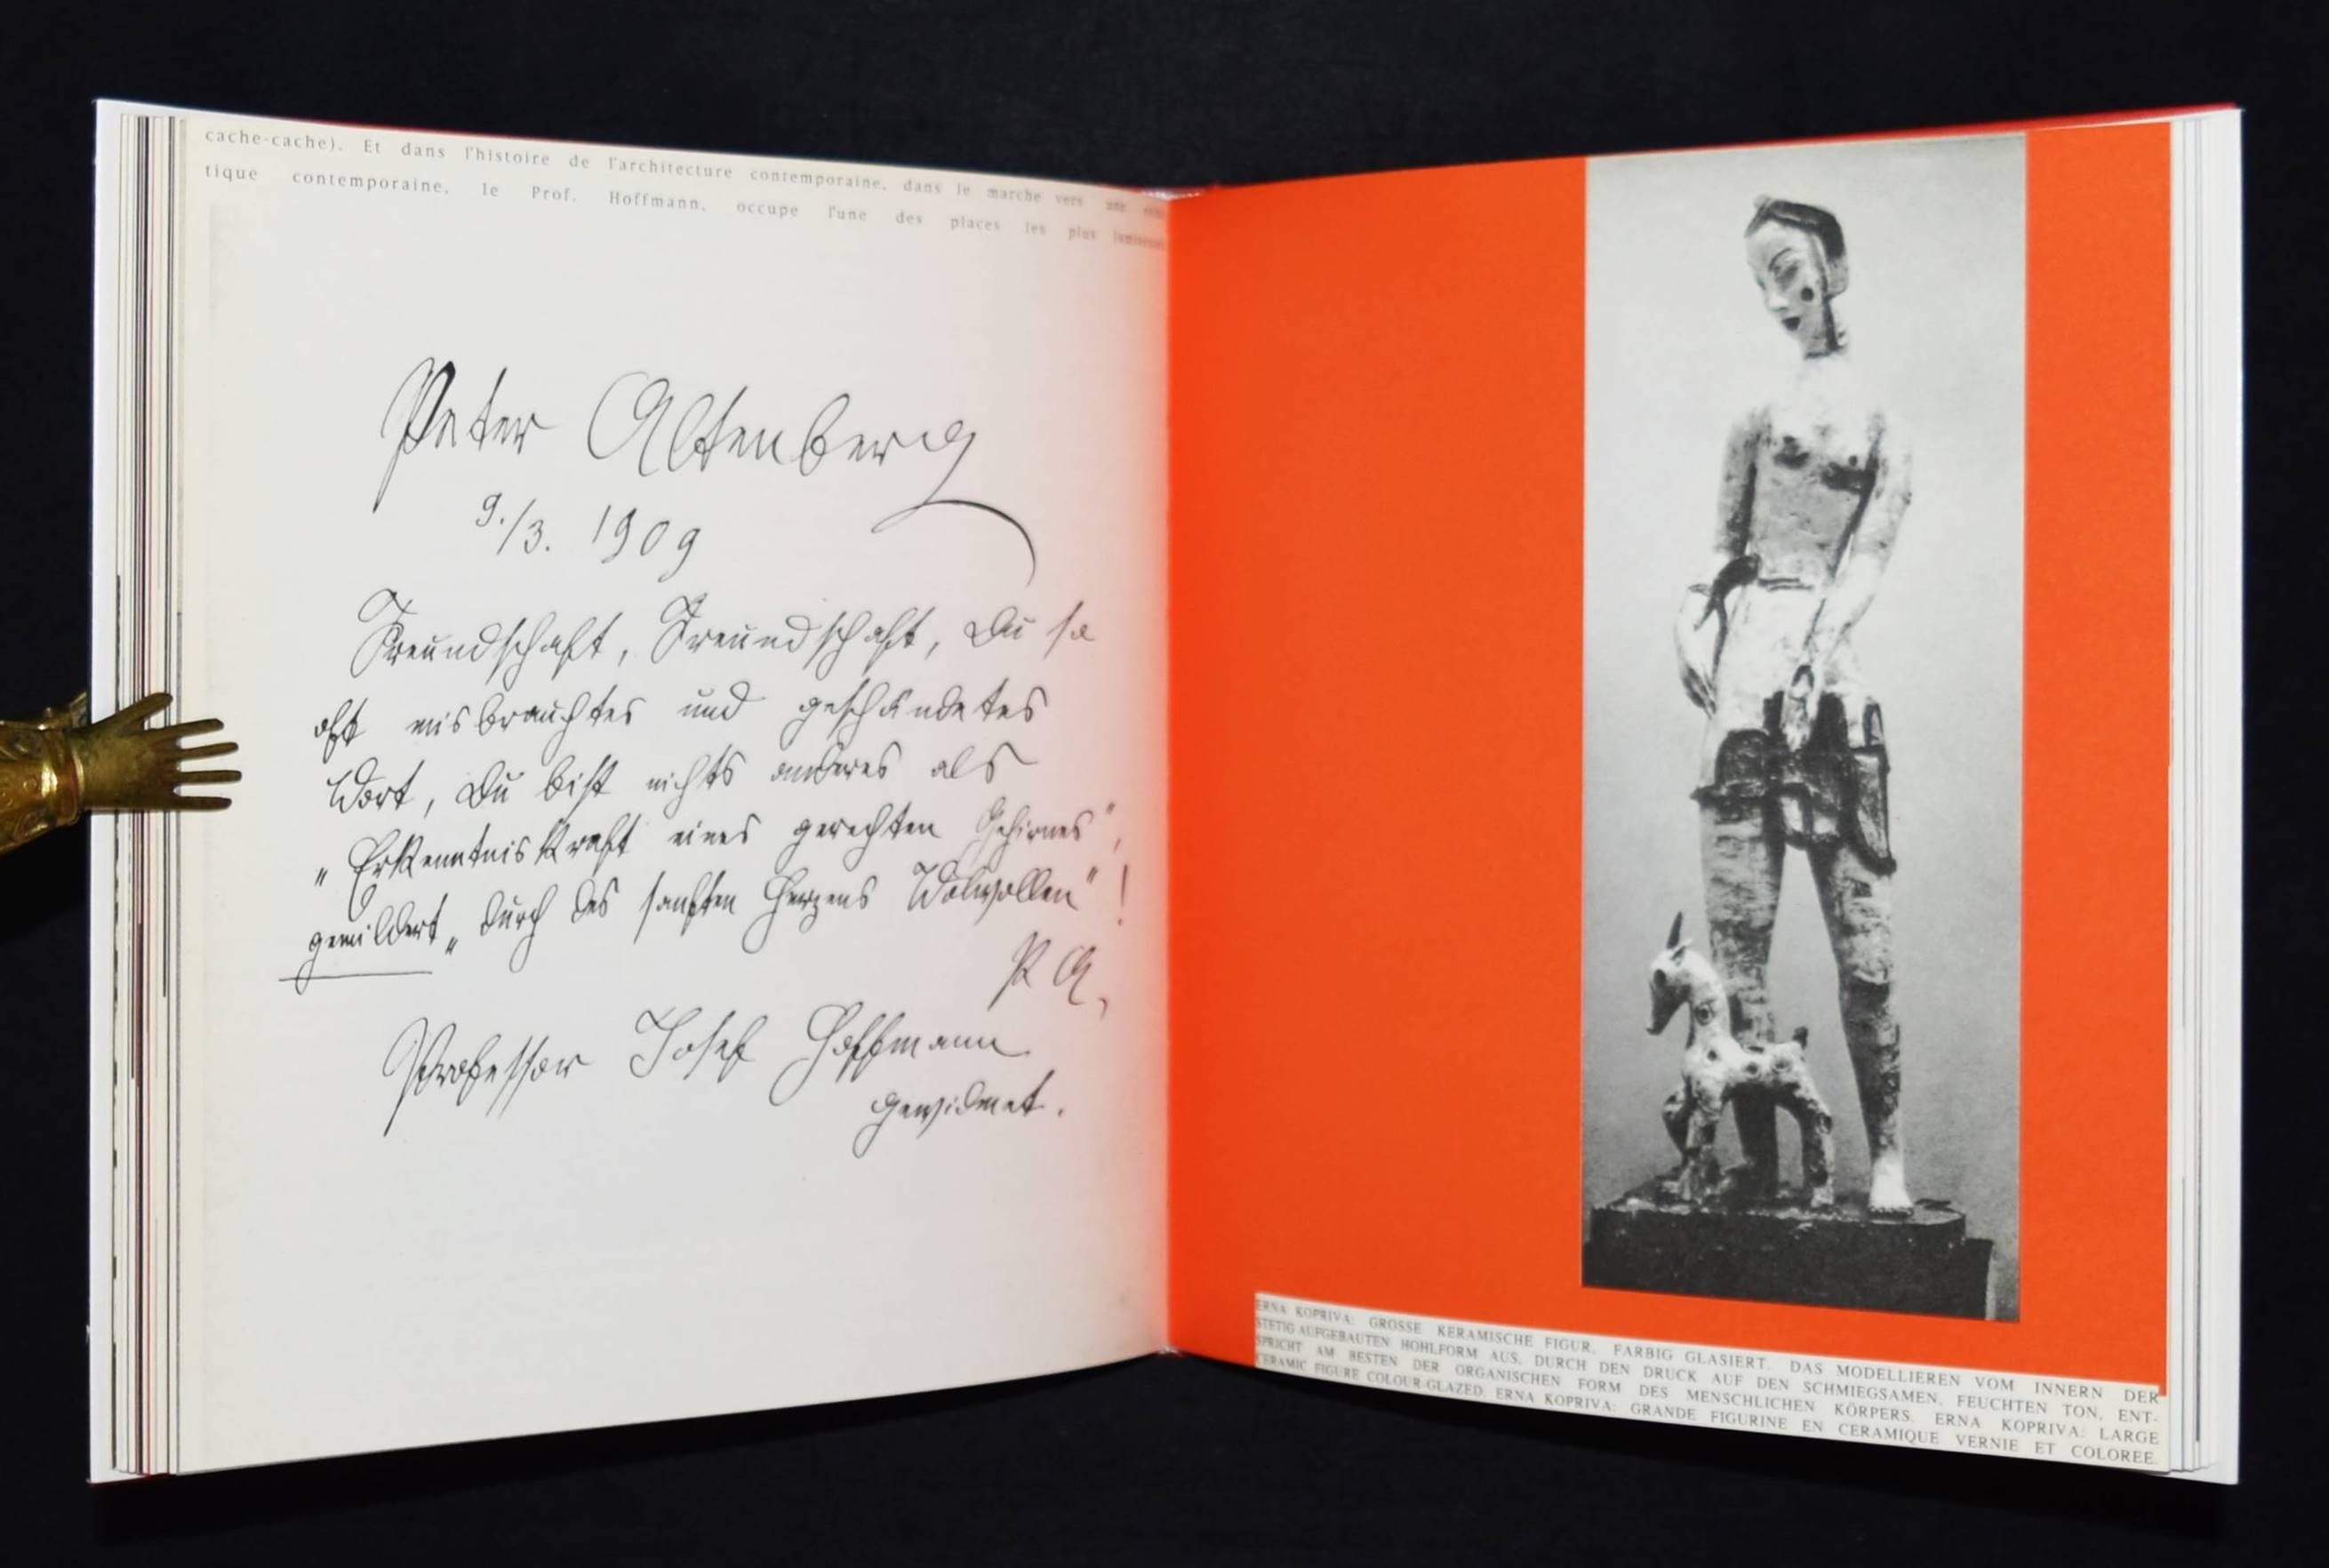 cache-cache). Et dans l'histoire de l'architecture contemporaine, dans le marche vers une
tique contemporaine, le Prof. Hoffmann, occupe l'une des places les plus
Peter Altenberg
9./3. 1909
Freundschaft, Freundschaft, Du so
oft misbrauchtes und geschändetes
Wort, Du bist nichts anderes als
„Erkenntniskraft eines gerechten Gehirnes",
gemildert „durch des sanften Herzens Wolwollen"!
P A,
Professor Josef Hoffmann
gewidmet.
ERNA KOPRIVA: GROSSE KERAMISCHE FIGUR, FARBIG GLASIERT. DAS MODELLIEREN VOM INNERN DER
STETIG AUFGEBAUTEN HOHLFORM AUS, DURCH DEN DRUCK AUF DEN SCHMIEGSAMEN, FEUCHTEN TON, ENT-
SPRICHT AM BESTEN DER ORGANISCHEN FORM DES MENSCHLICHEN KÖRPERS. ERNA KOPRIVA: LARGE
CERAMIC FIGURE COLOUR-GLAZED. ERNA KOPRIVA: GRANDE FIGURINE EN CERAMIQUE VERNIE ET COLOREE.